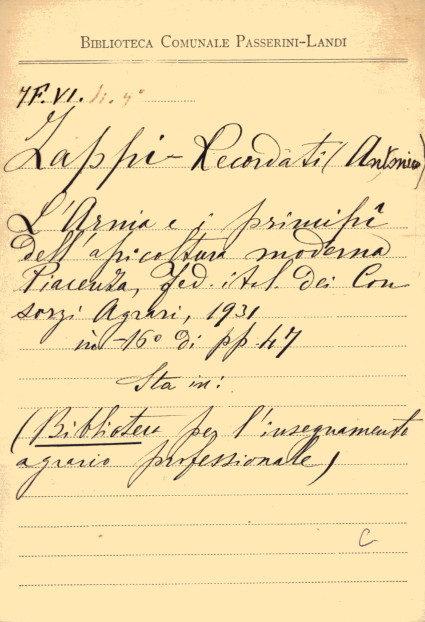 BIBLIOTECA COMUNALE PASSERINI-LANDI
7F.VI.
Zappi-Recordati (Antonio)
L'Arnia e i principî
dell'apicoltura moderna
Piacenza, Fed. ital. dei Con
sorzi Agrari, 1931
in-16° di pp. 47
Sta in:
(Biblioteca per l'insegnamento
agrario professionale)
C